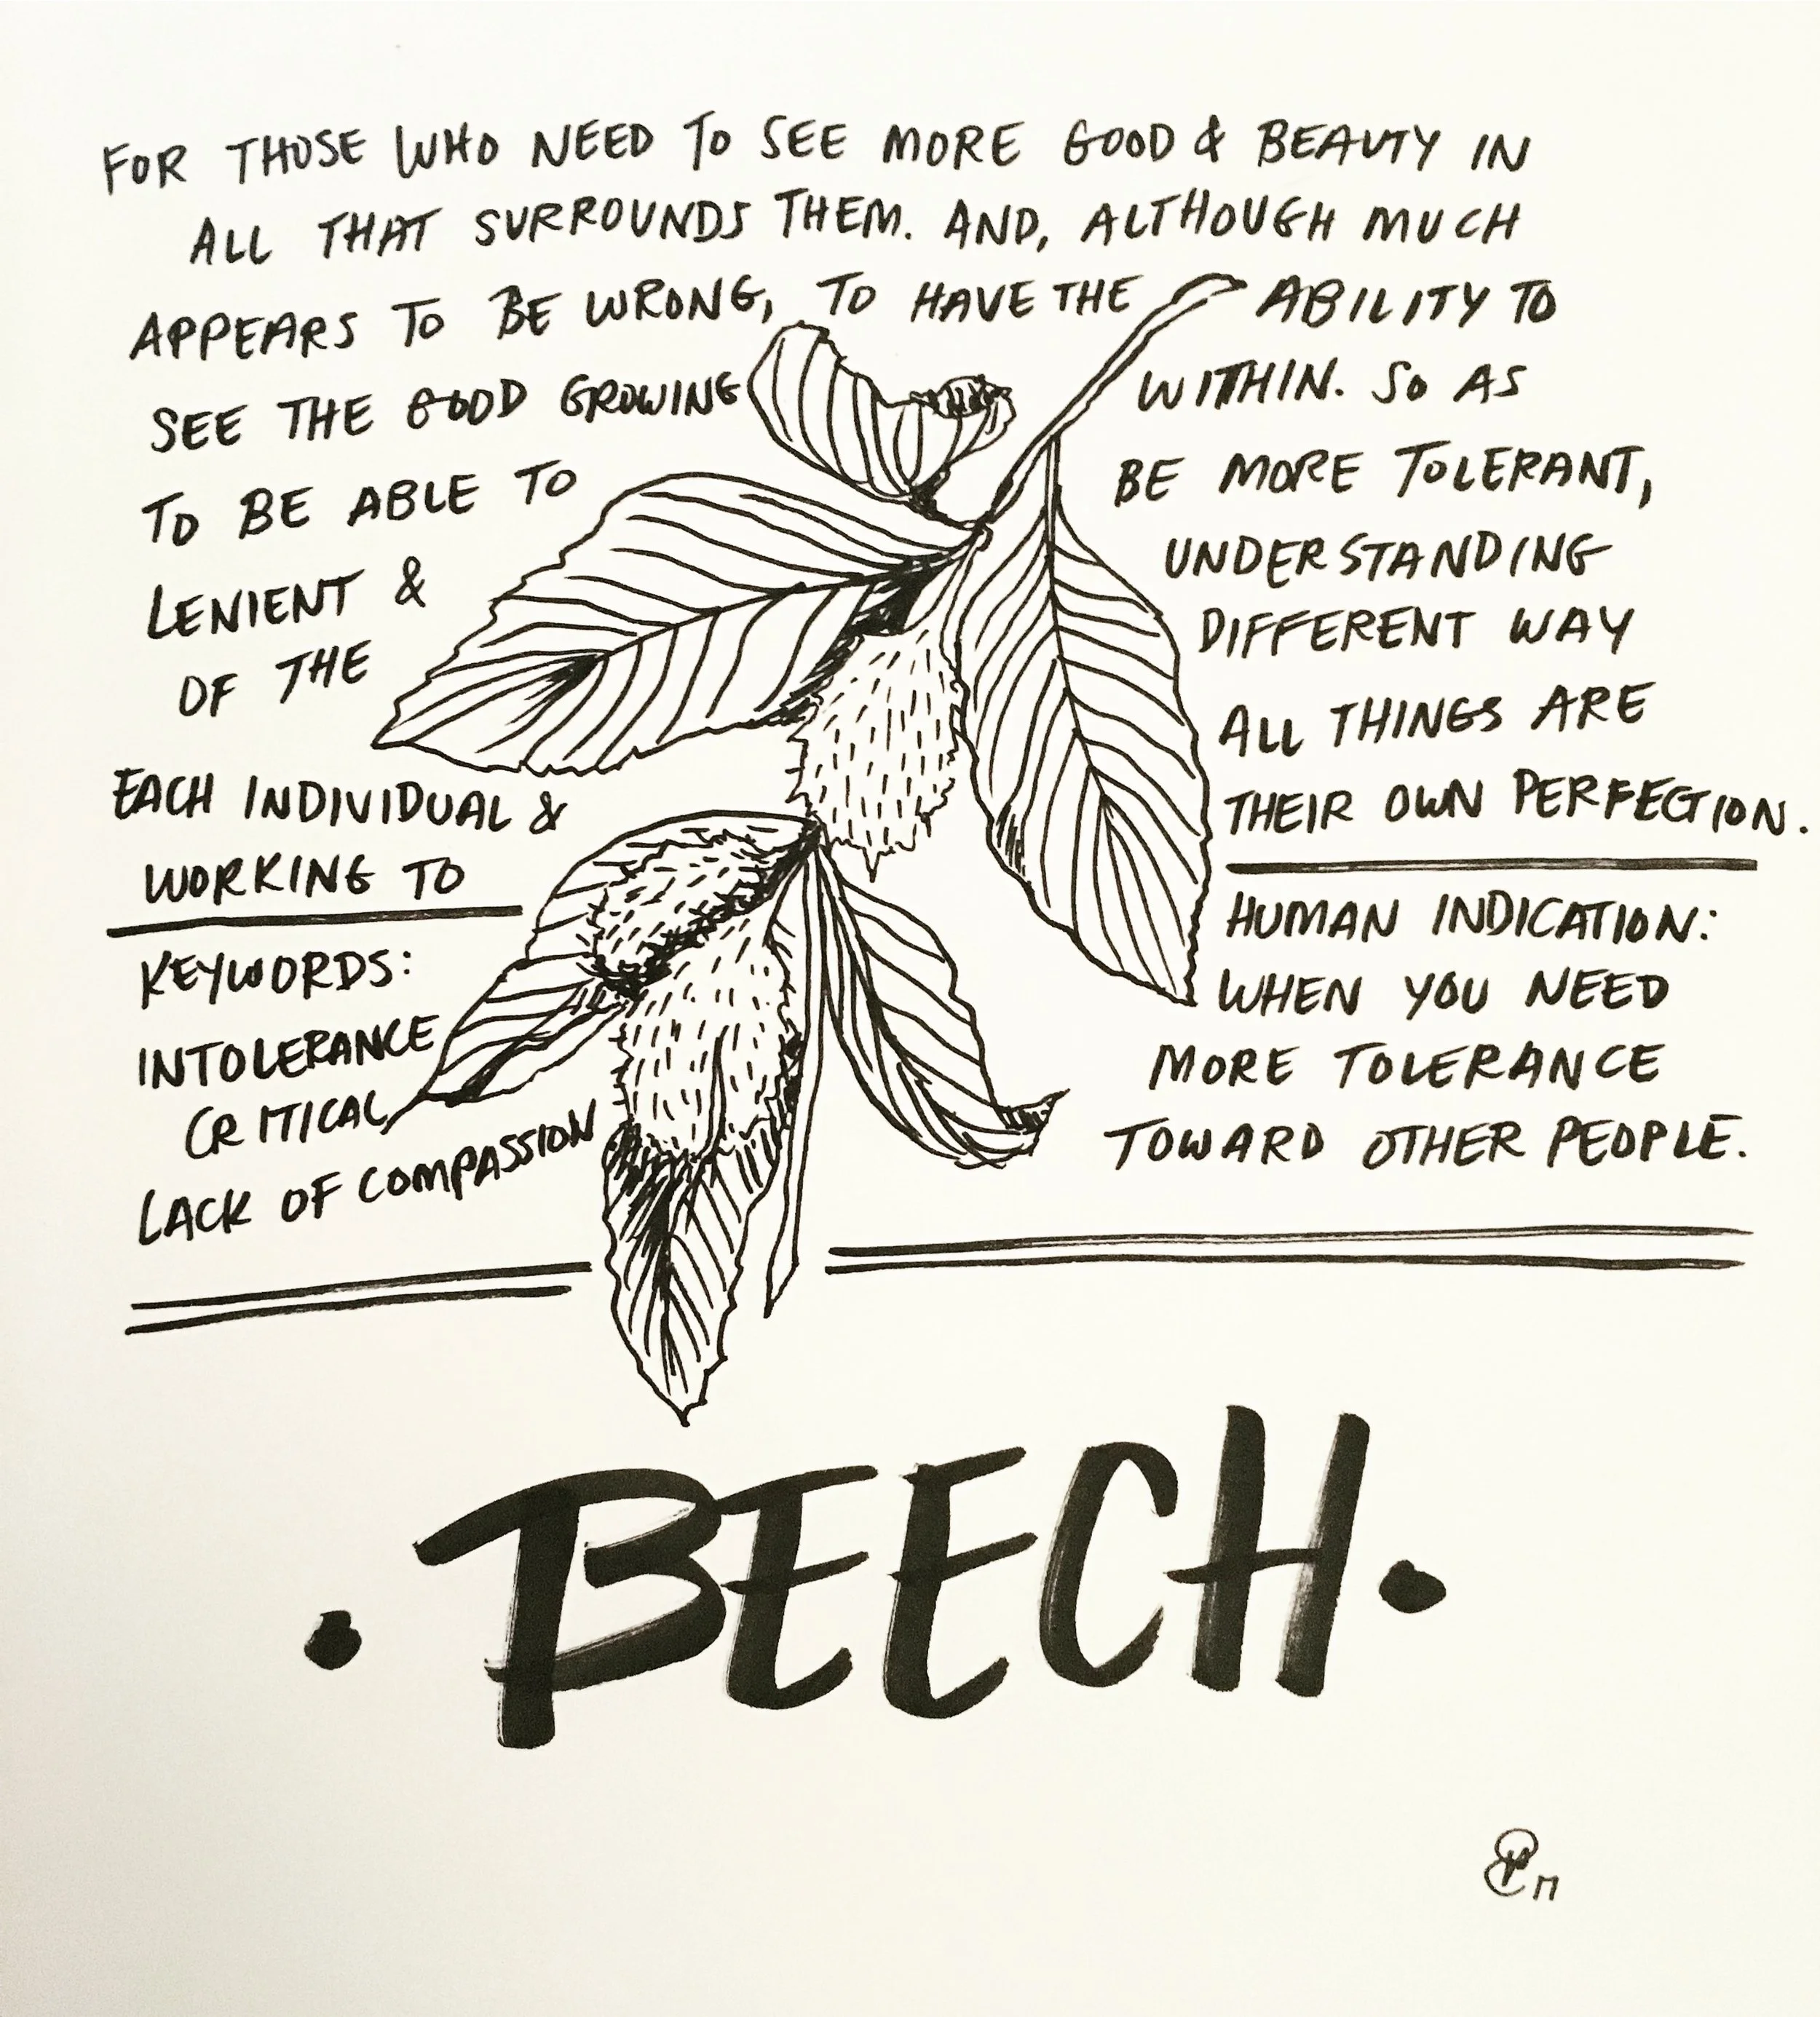 FOR THOSE WHO NEED TO SEE MORE GOOD & BEAUTY IN
ALL THAT SURROUNDS THEM. AND, ALTHOUGH MUCH
APPEARS TO BE WRONG, TO HAVE THE ABILITY TO
SEE THE GOOD GROWING WITHIN. SO AS
TO BE ABLE TO BE MORE TOLERANT,
LENIENT & UNDERSTANDING
OF THE DIFFERENT WAY
EACH INDIVIDUAL & ALL THINGS ARE
WORKING TO THEIR OWN PERFECTION.
KEYWORDS:
INTOLERANCE
CRITICAL
LACK OF COMPASSION
HUMAN INDICATION:
WHEN YOU NEED
MORE TOLERANCE
TOWARD OTHER PEOPLE.
• BEECH •